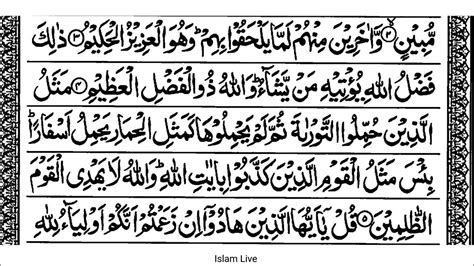 مُّبِیْنٍۙ۝۲ وَّاٰخَرِیْنَ مِنْهُمْ لَمَّا یَلْحَقُوْا بِهِمْؕ وَهُوَ الْعَزِیْزُ الْحَكِیْمُ۝۳ ذٰلِكَ
فَضْلُ اللّٰهِ یُؤْتِیْهِ مَنْ یَّشَآءُؕ وَاللّٰهُ ذُو الْفَضْلِ الْعَظِیْمِ۝۴ مَثَلُ
الَّذِیْنَ حُمِّلُوا التَّوْرٰىةَ ثُمَّ لَمْ یَحْمِلُوْهَا كَمَثَلِ الْحِمَارِ یَحْمِلُ اَسْفَارًاؕ
بِئْسَ مَثَلُ الْقَوْمِ الَّذِیْنَ كَذَّبُوْا بِاٰیٰتِ اللّٰهِؕ وَاللّٰهُ لَا یَهْدِی الْقَوْمَ
الظّٰلِمِیْنَ۝۵ قُلْ یٰۤاَیُّهَا الَّذِیْنَ هَادُوْۤا اِنْ زَعَمْتُمْ اَنَّكُمْ اَوْلِیَآءُ لِلّٰهِ
Islam Live